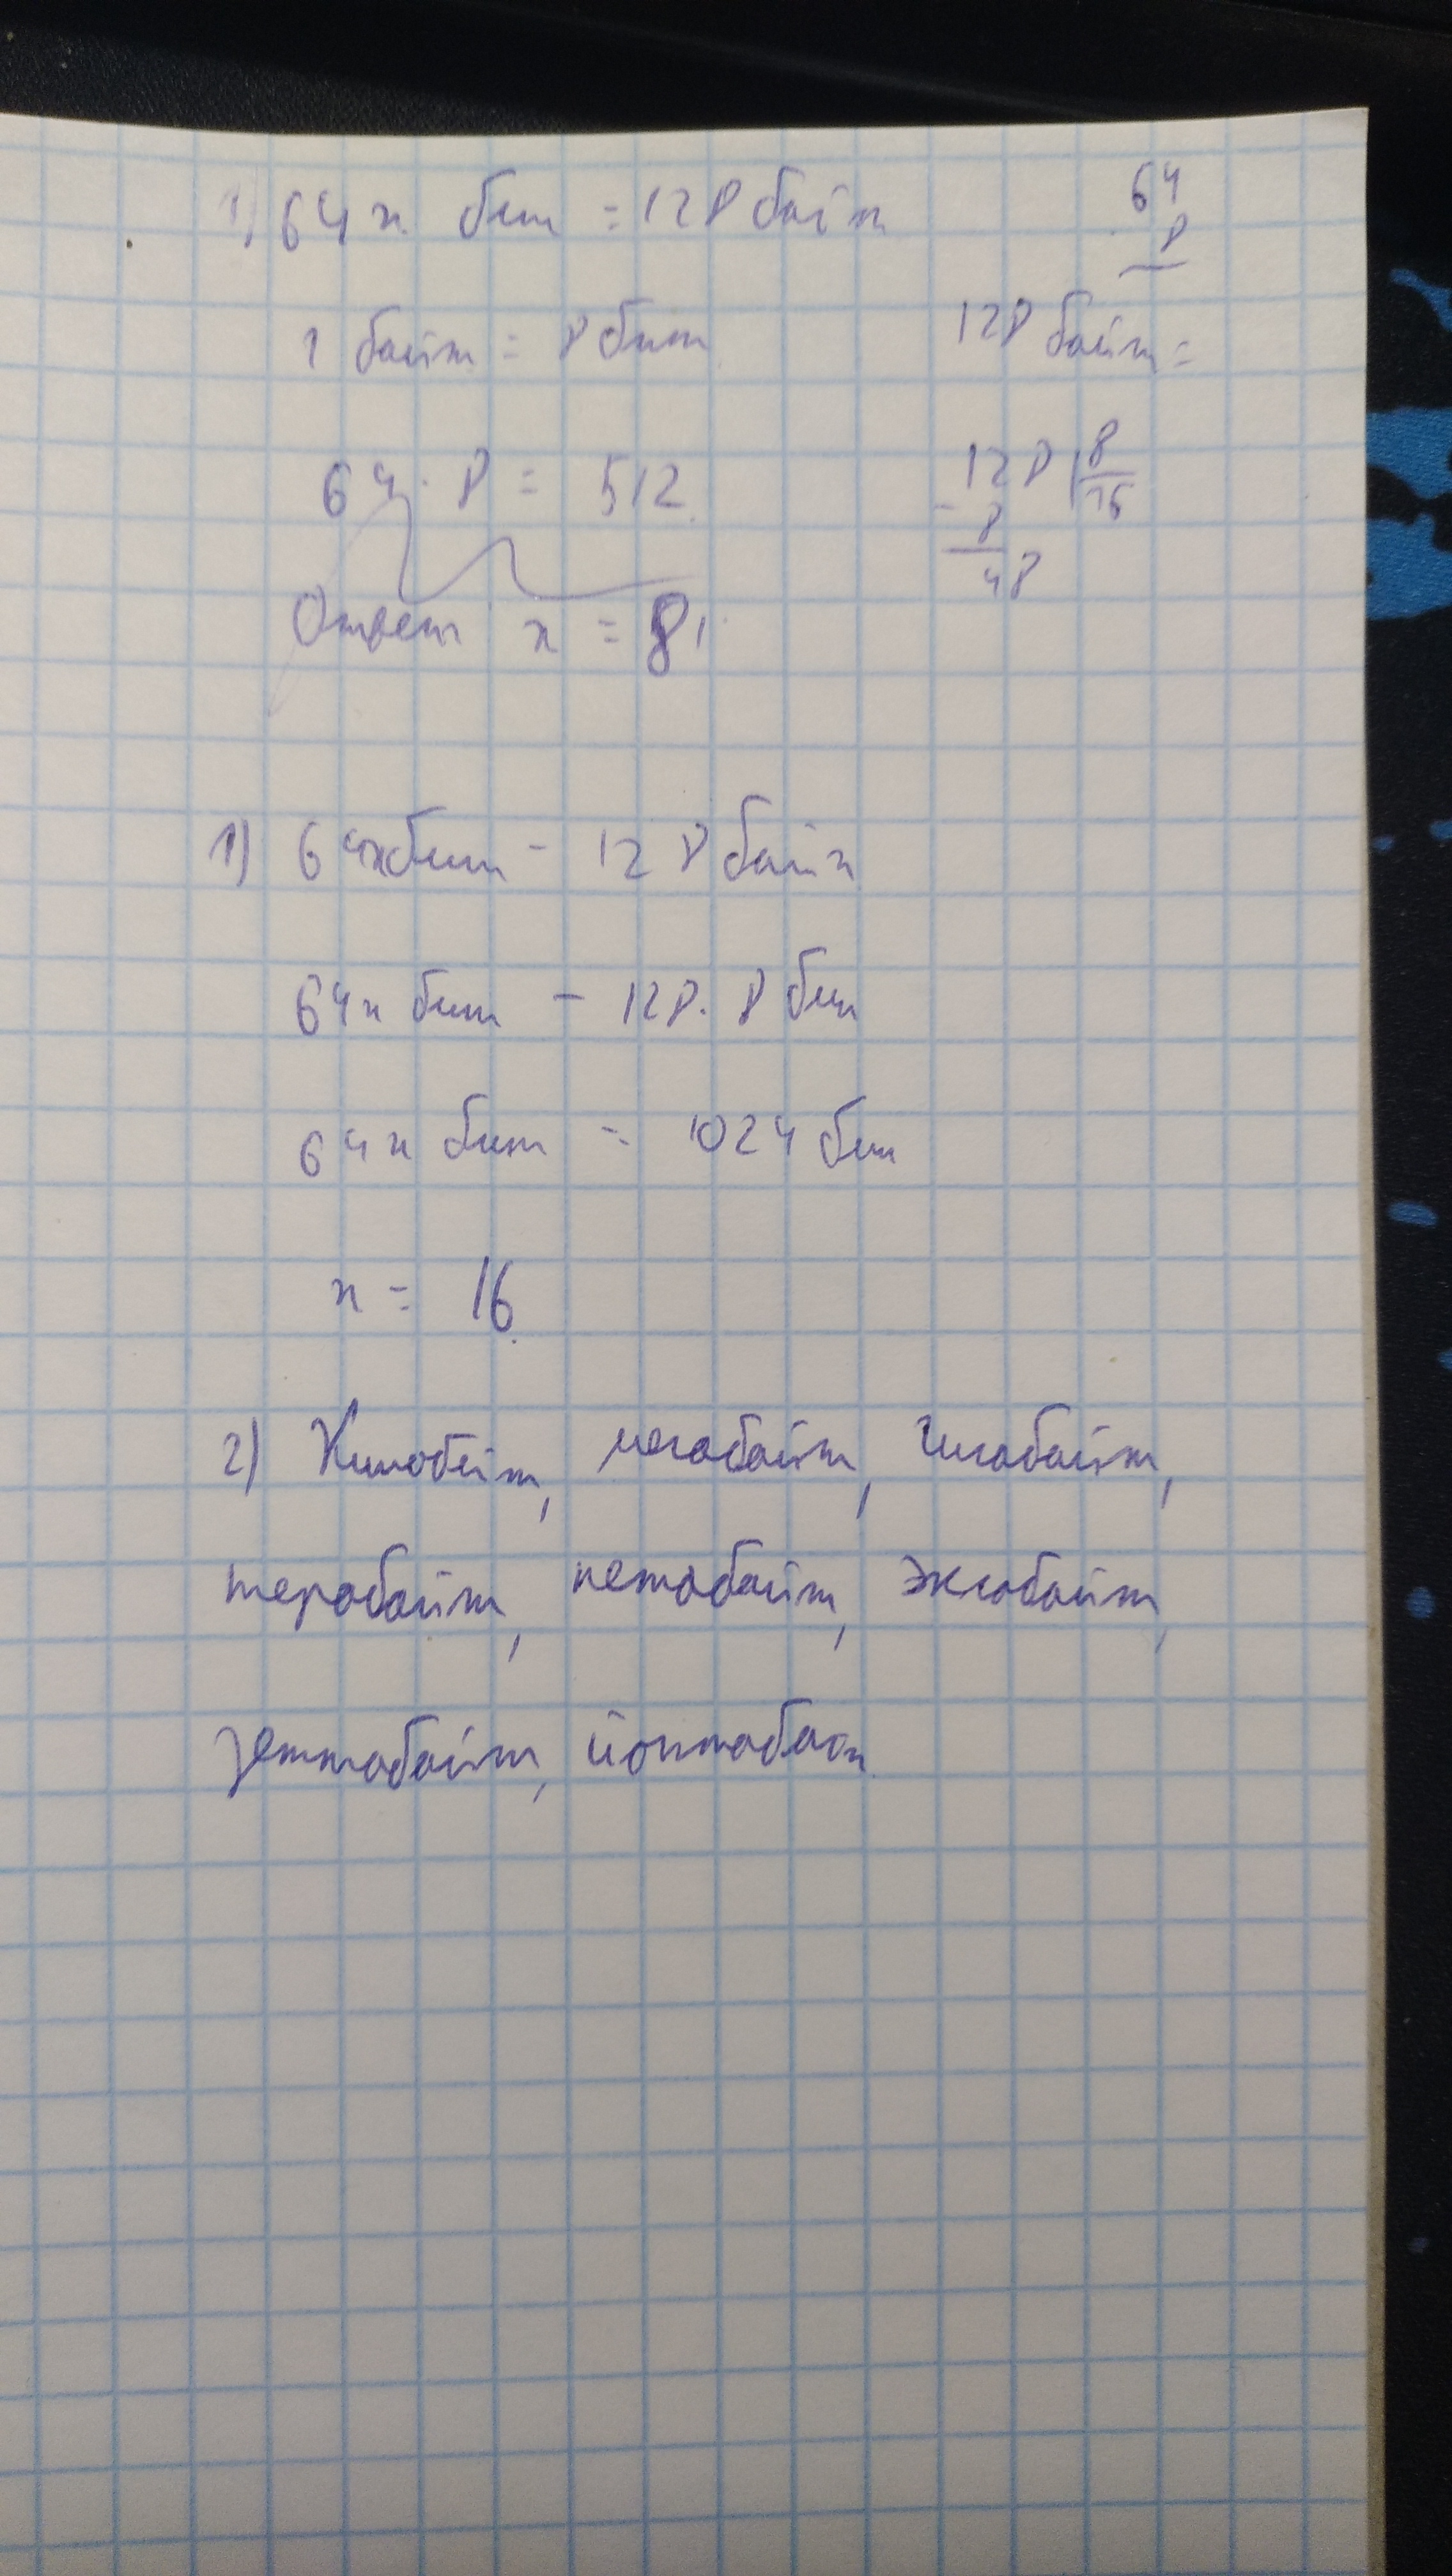 1) 64 х бит = 128 байт
64
8
1 байт = 8 бит
128 байт =
64 · 8 = 512
128 | 8
- 8 16
48
Ответ х = 8
1) 64х бит = 128 байт
64х бит = 128 · 8 бит
64х бит = 1024 бит
х = 16
2) Килобайт, мегабайт, гигабайт,
терабайт, петабайт, эксабайт,
зеттабайт, йоттабайт